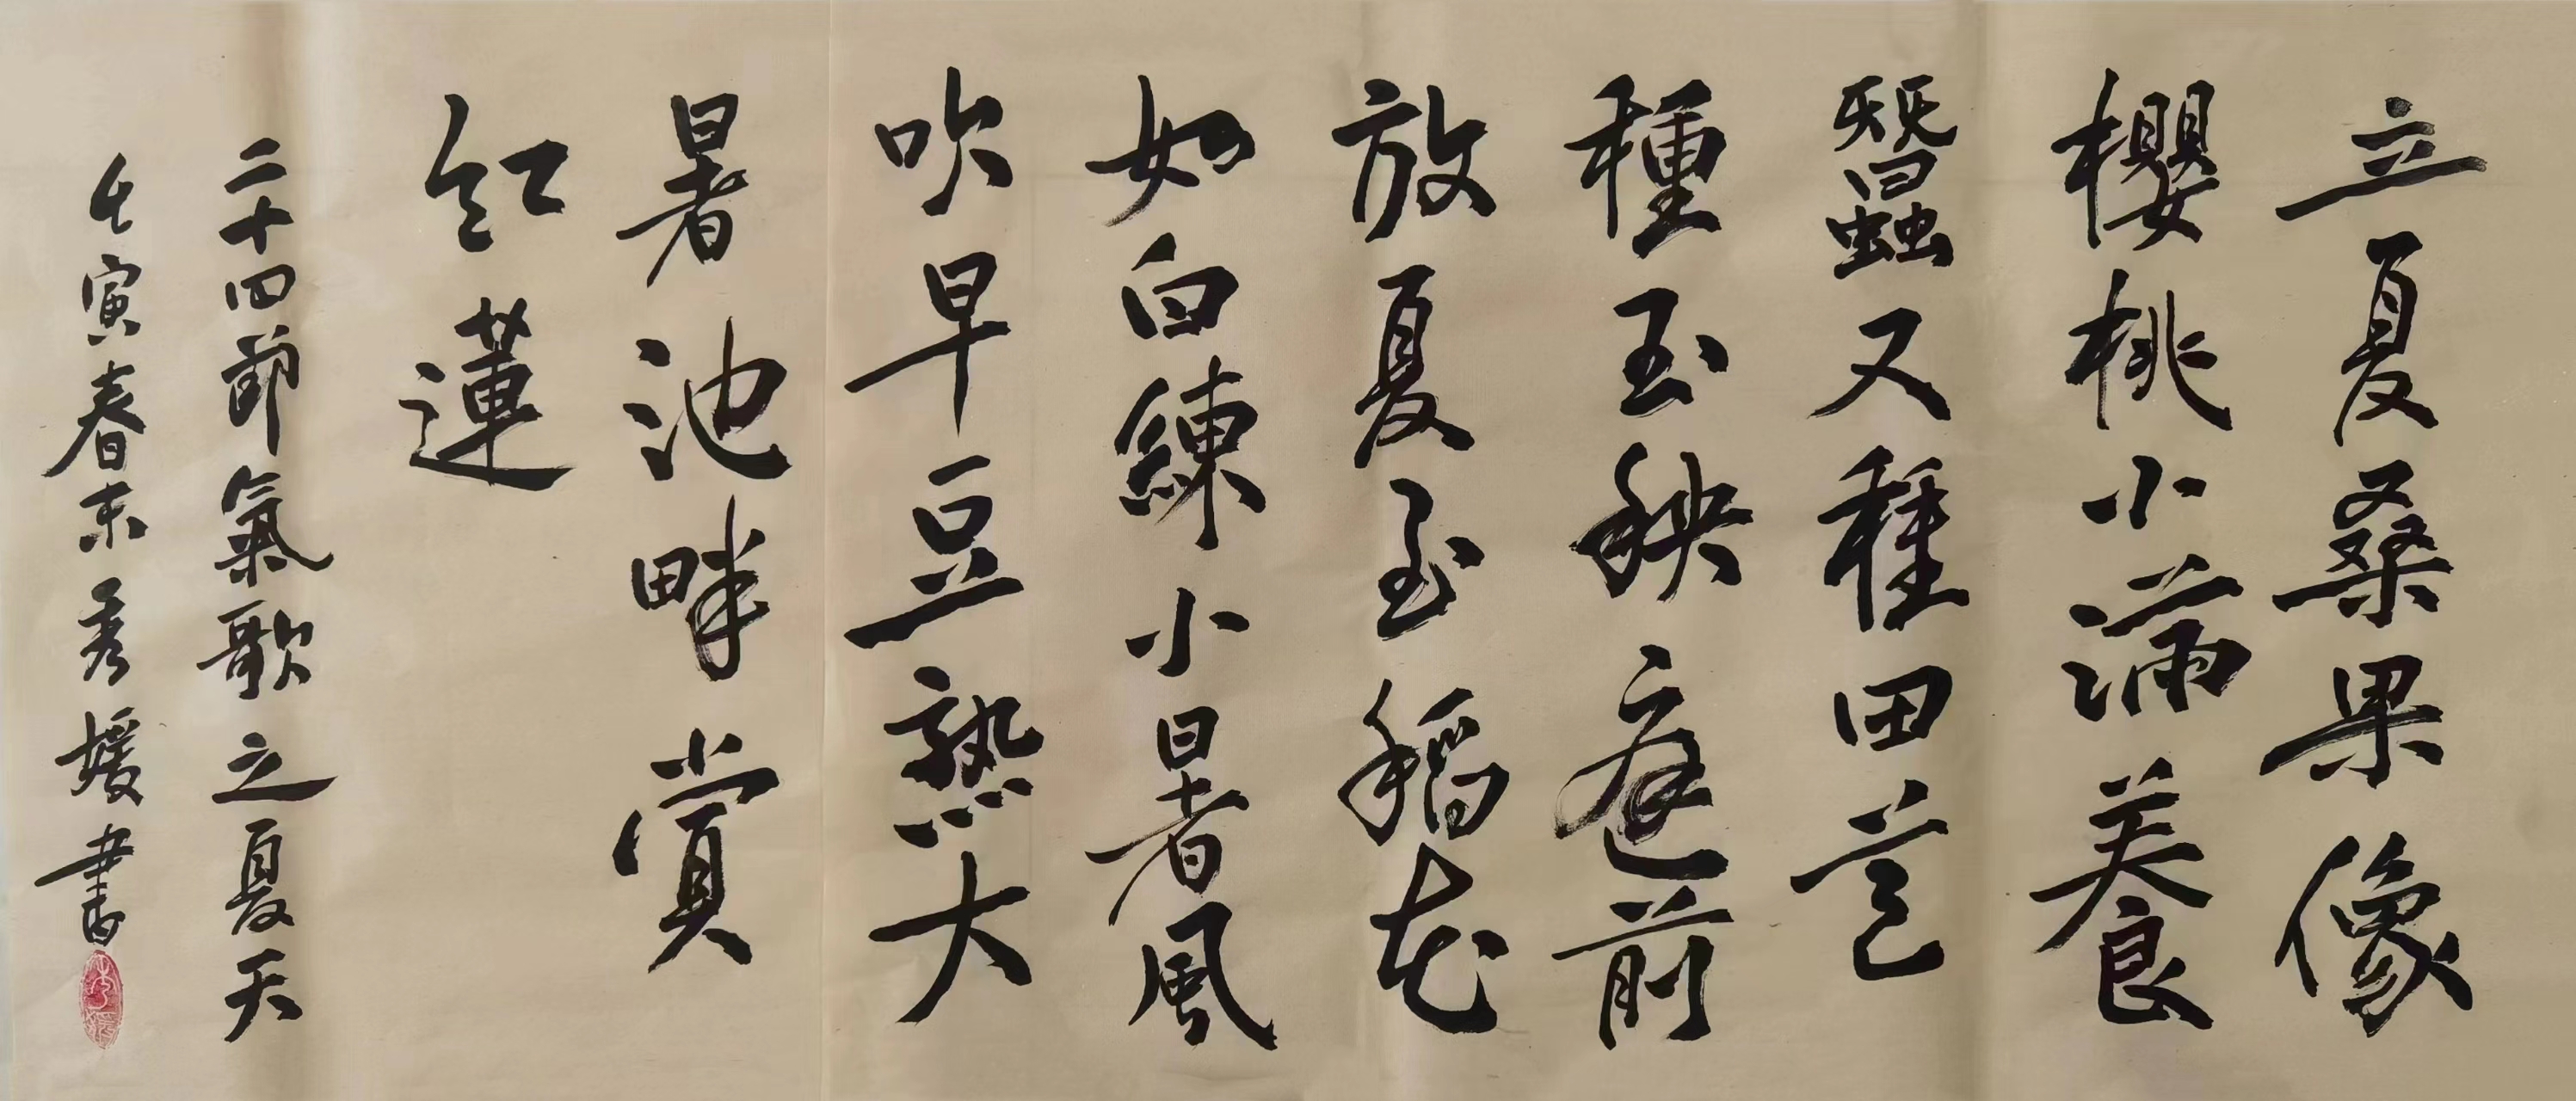 立夏桑果像
櫻桃小滿養
蠶又種田芒
種玉秧庭前
放夏至稻花
如白練小暑風
吹早豆熟大
暑池畔賞
紅蓮
二十四節氣歌之夏天
壬寅春末秀媛書